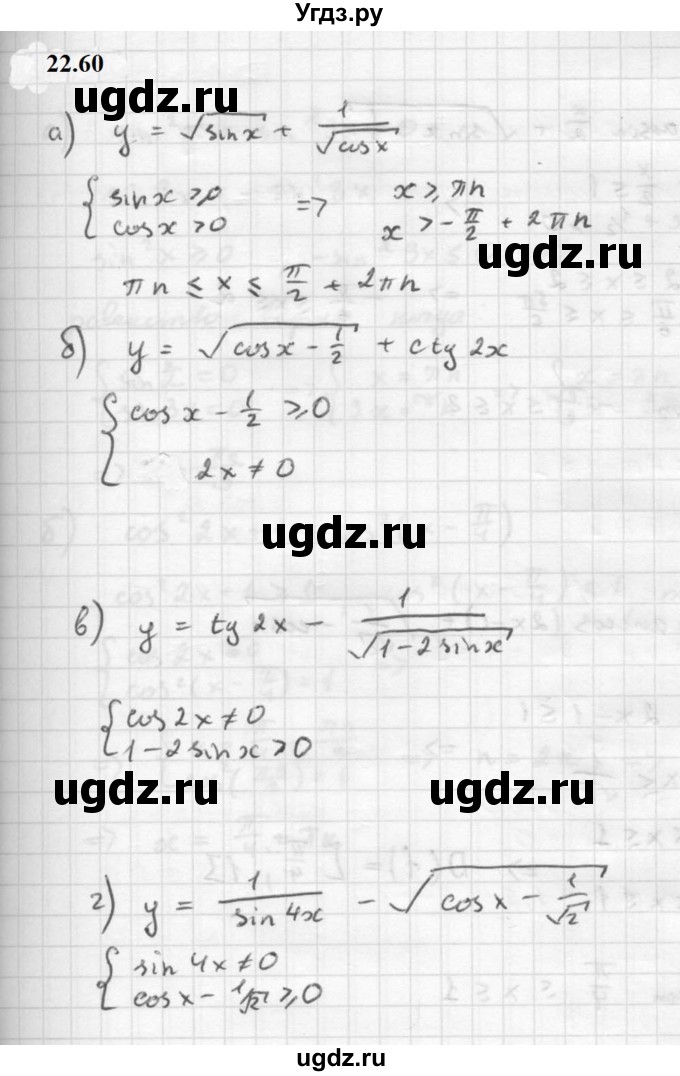 Угдз.ру
22.60
ugdz.ru
а) y = √sinx + 1/√cosx
{ sinx ≥ 0 => x ≥ πn
cosx > 0 x > -π/2 + 2πn
ugdz.ru
πn ≤ x ≤ π/2 + 2πn
б) y = √(cosx - 1/2) + ctg 2x
{ cosx - 1/2 ≥ 0
2x ≠ 0
ugdz.ru
в) y = tg 2x - 1/√(1-2sinx)
{ cos2x ≠ 0
1-2sinx > 0
ugdz.ru ugdz.ru
г) y = 1/sin4x - √(cosx - 1/√2)
{ sin 4x ≠ 0
cosx - 1/√2 ≥ 0
ugdz.ru
ugdz.ru